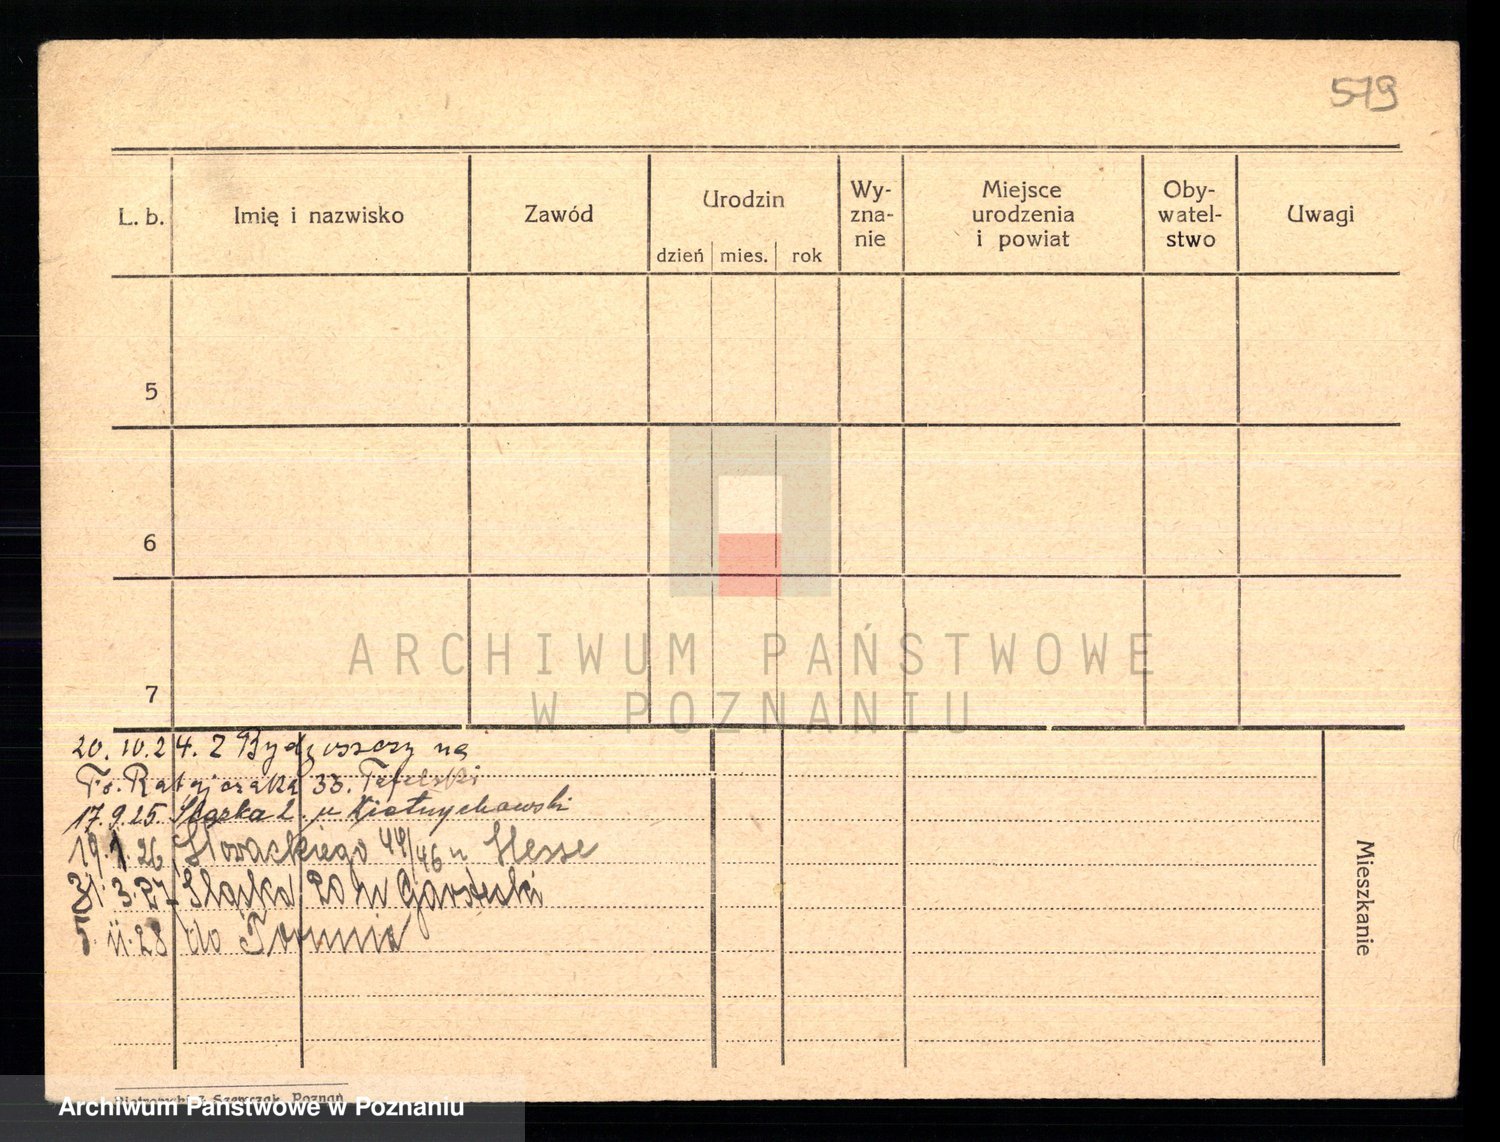 579
L. b.
Imię i nazwisko
Zawód
Urodzin
dzień mies. rok
Wy-
zna-
nie
Miejsce
urodzenia
i powiat
Oby-
watel-
stwo
Uwagi
5
6
7
ARCHIWUM PAŃSTWOWE
W POZNANIU
20. 10. 24. Z Bydgoszczy na
Fr. Ratajczaka 33. Tefelski
17. 9. 25. Śląska 2. u
19. 1 26 Słowackiego 44/46 u Hesse
31. 3. 27 Śląska 20 u
5. 11. 28 do Torunia
Mieszkanie
Piotrowski & Szewczak, Poznań
Archiwum Państwowe w Poznaniu